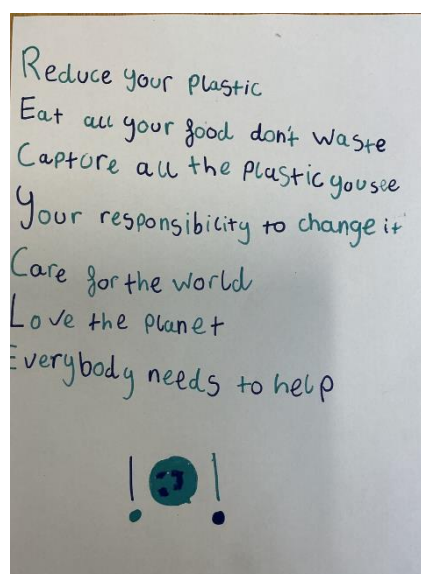 Reduce your plastic
Eat all your food don't waste
Capture all the plastic you see
Your responsibility to change it
Care for the world
Love the planet
Everybody needs to help
! !